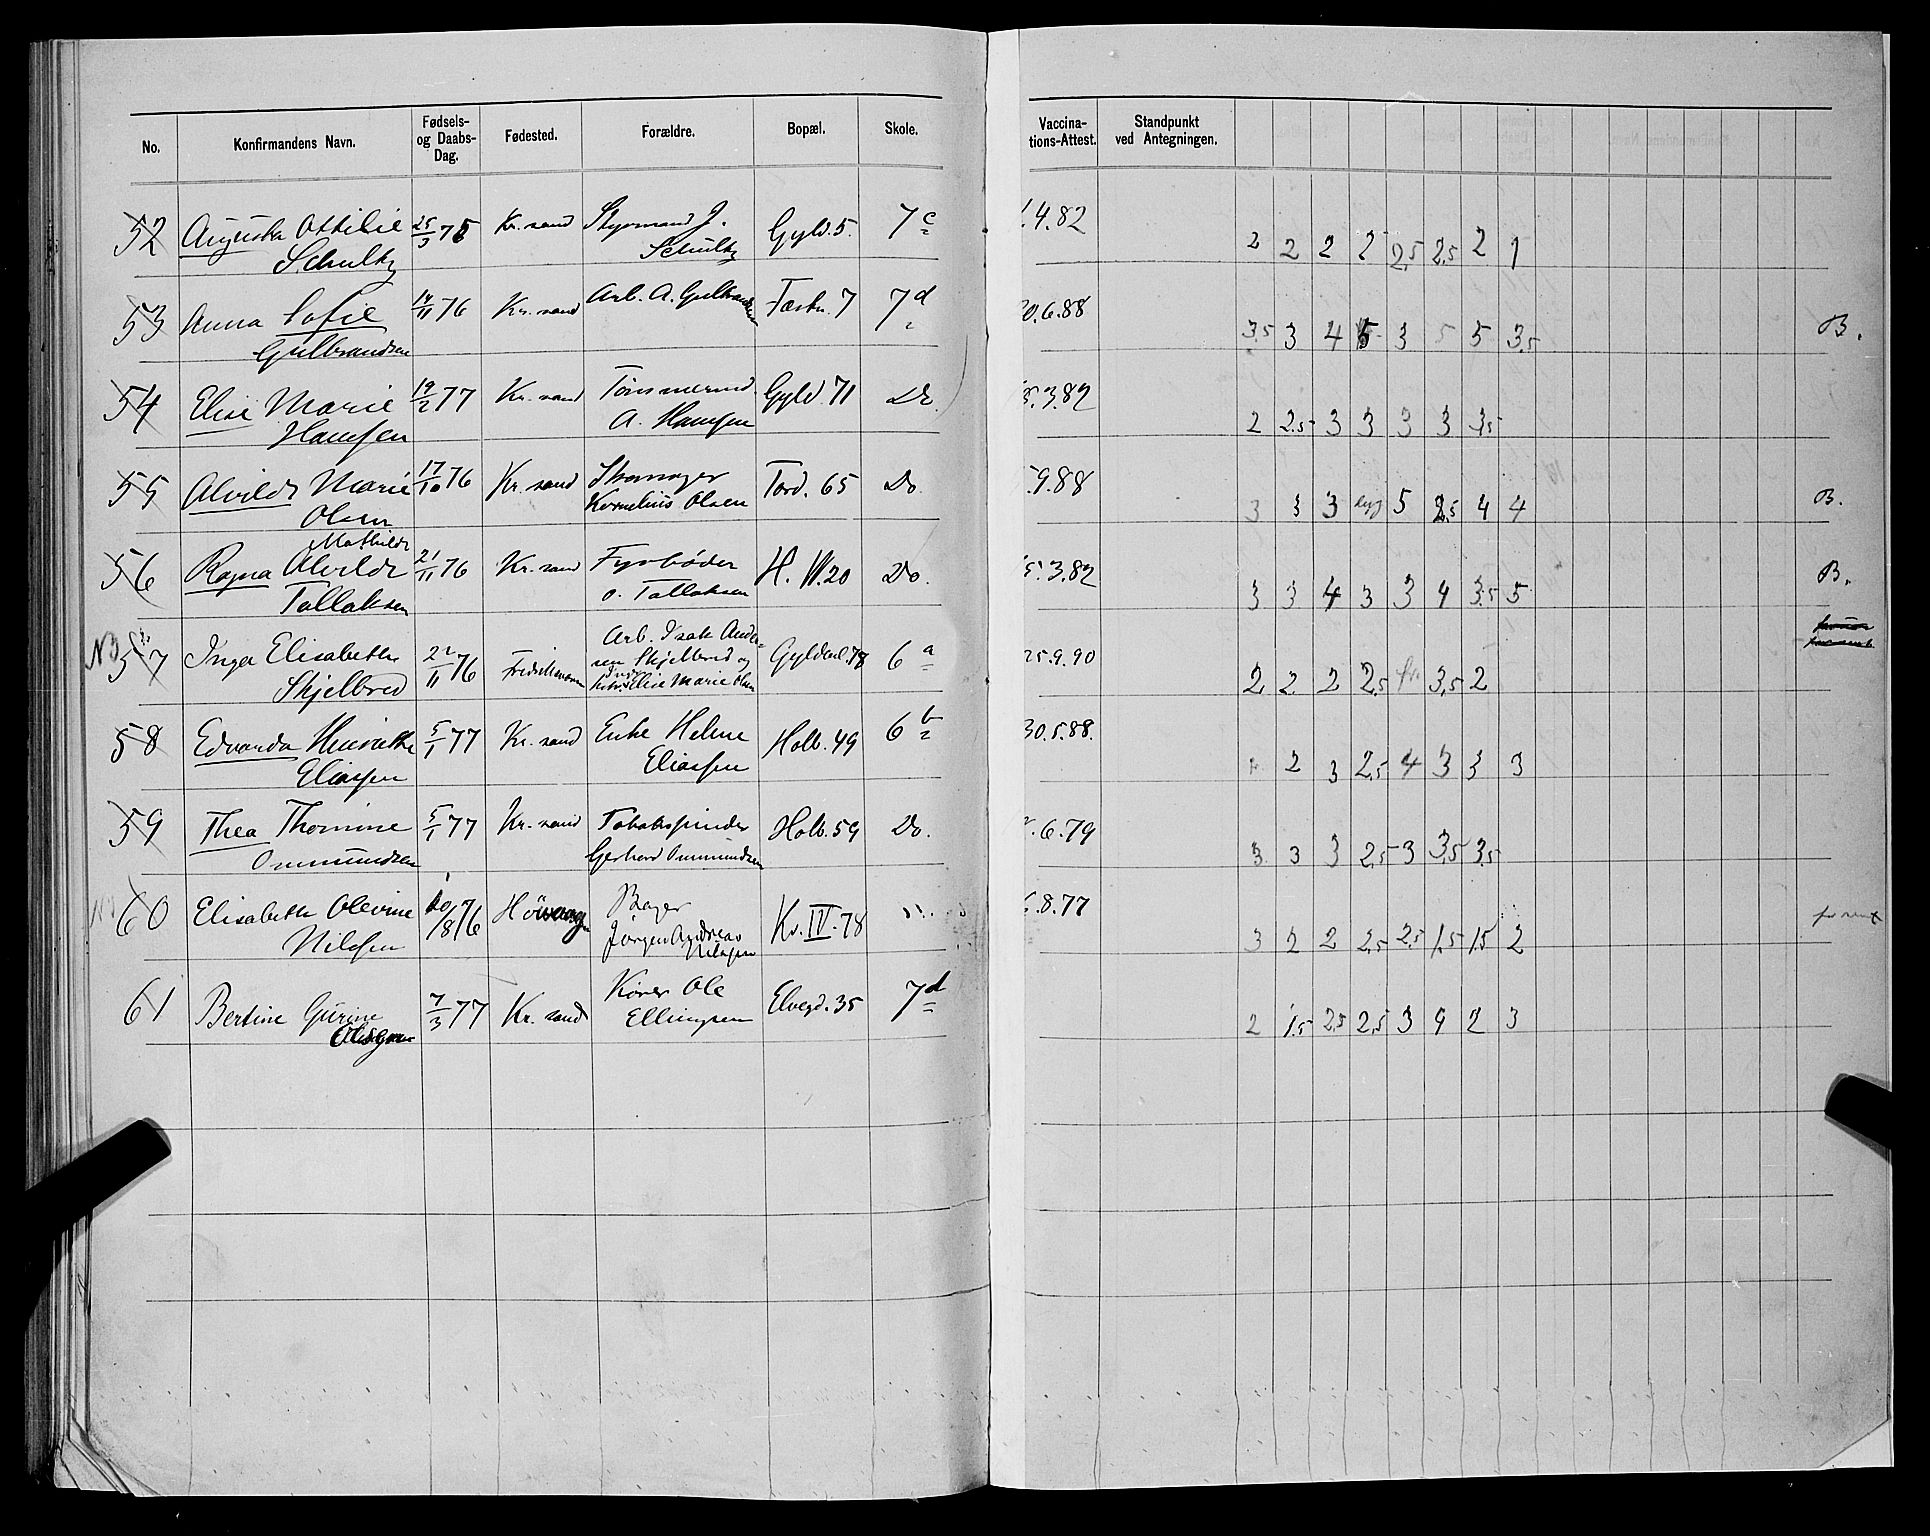 No. Konfirmandens Navn. Fødsels- og Daabs-Dag. Fødested. Forældre. Bopæl. Skole. Vaccina-tions-Attest. Standpunkt ved Antegningen.
52 Augusta Ottilie 25/3 75 Kr. sand Styrmand J. Gyld. 5. 7c .4.82 2 2 2 2 2,5 2,5 2 1
Schultz Schultz
53 Anna Sofie 14/11 76 Kr. sand Arb. A. Gulbrandsen Fæstn. 7 7d 0.6.88 3,5 3 4 5 3 5 5 3,5 B.
Gulbrandsen
54 Elise Marie 19/2 77 Kr. sand Tømmermd. Gyld. 71 Do. .3.82 2 2.5 3 3 3 3 3,5
Hansen A. Hansen
55 Alvilde Marie 17/10 76 Kr. sand Skomager Tord. 65 Do .9.88 3 3 3 5 2,5 4 4 B.
Olsen Kornelius Olsen
Mathilde
56 Ragna Alvilde 21/11 76 Kr. sand Fyrbøder H. VI. 20 Do. 5.3.82 3 3 4 3 3 4 3.5 5 B.
Tallaksen O. Tallaksen
57 Inga Elisabeth 22/11 76 Arb. Isak Ander- Gyldenl. 78 6a 25.9.90 2 2 2 2,5 3,5 2
Skjelbred sen Skjelbred og
Elise Marie Olsen
58 Edvarda Henriette 5/1 77 Kr. sand Enke Helene Holb. 49 6b 30.5.88. 2 3 2,5 4 3 3 3
Eliassen Eliassen
59 Thea Thomine 5/1 77 Kr. sand Tobakspinder Holb. 59 Do. .6.79 3 3 3 2,5 3 3,5 3,5
Ommundsen Gerhard Ommundsen
60 Elisabeth Olevine 10/8 76 Høivaag Bager Kr. IV. 78 .8.77 3 2 2 2,5 2,5 1,5 1,5 2
Nilsen Jørgen Andreas
Nilsen
61 Bertine Gurine 7/3 77 Kr. sand Kører Ole Elvegd. 35 7d 2 1,5 2,5 2,5 3 4 2 3
Ellingsen